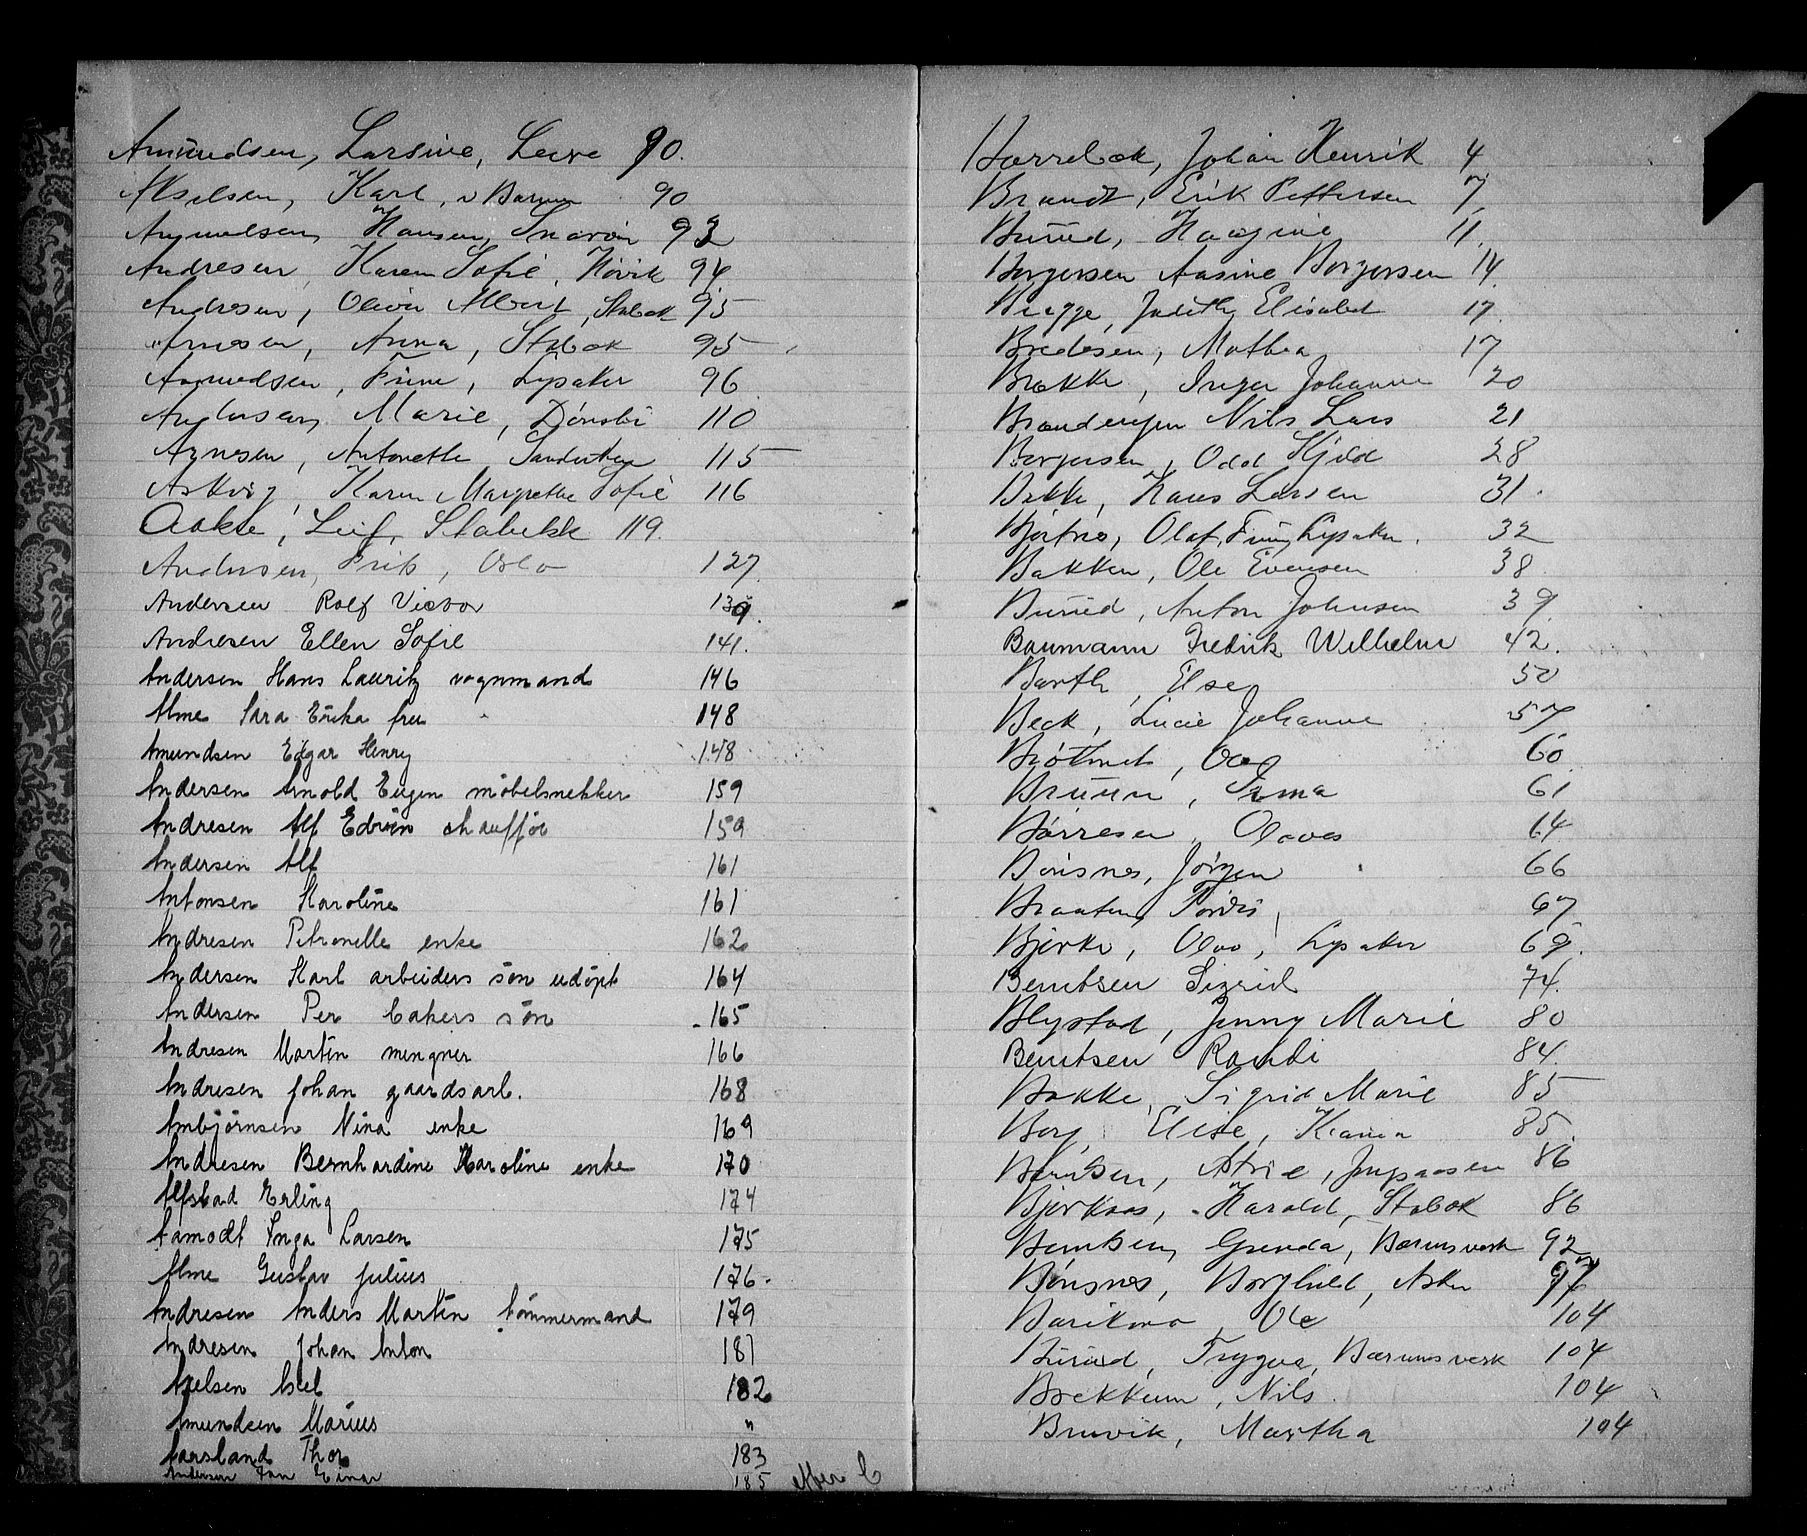 Amundsen, Larsine, 90.
Akselsen, Karl, v Bærum 90
Hansen, Snarøen 93
Andresen Karen Sofie, Høvik 94
Andresen, Oliver Albert, Stabæk 95
Arnesen, Anna, Stabæk 95
Asmundsen, Finn, Lysaker 96
Andersen, Marie, Dønski 110
Agnesen, Antonette Sandviken 115
Askvig, Karen Margrethe Sofie 116
Aakre, Leif, Stabekk 119.
Andersen, Frits, Oslo 127
Andersen Rolf Victor 139.
Andresen Ellen Sofie 141.
Andersen Hans Lauritz vognmand 146
Alme Sara Erika fru 148
Amundsen Edgar Henry 148
Andersen Arnold Eugen møbelsnekker 159
Andresen Alf Edvin chauffør 159
Andersen Alf 161
Antonsen Karoline 161
Andresen Petronelle enke 162
Andersen Karl arbeiders søn udøpt 164
Andersen Per bakers søn 165
Andresen Martin 166
Andresen Johan gaardsarb. 168
Ambjørnsen Nina enke 169
Andresen Bernhardine Karoline enke 170
Alfstad Erling 174
Aamodt Inga Larsen 175
Alme Gustav Julius 176.
Andresen Anders Martin tømmermand 179
Andresen Johan Anton 181
Axelsen Axel 182
Amundsen Marius "
Aarsland Thor 183
Andersen Jan Einar 185 efter C
Borrebæk, Johan Henrik 4
Brandt, Erik Pettersen 7
Burud, Haagine 11.
Borgersen Aasine Borgersen 14
Bugge, Judith Elisabet 17.
Bredesen, Mathea 17
Brække, Inga Johanne 20
Brandengen Nils Lars 21
Borgersen, Odd Kjeld 28
Bakke, Hans Larsen 31.
Bjertnes, Olaf, Finn, Lysaker. 32
Bakken, Ole Evensen 38
Burud, Anton Johnsen 39.
Baumann Fredrik Wilhelm 42.
Barth, Else 50
Beck, Lucie Johanne 57
60
Bruun, Irma 61
Børresen, Olava 64
Bonsnes, Jørgen 66
Braaten, Tordis 67
Bjerke, Olav, Lysaker 69.
Berntsen Sigrid 74.
Blystad, Jenny Marie 80
Berntsen Randi 84.
Bakke, Sigrid Marie 85
Borg, Elise, Kania 85.
Berntsen, Astrid, Jongsaasen 86
Bjerkaas, Harald, Stabæk 86
Berntsen, Gunda, Bærumsverk 92
Bonsnes, Borghild, Asker 97
Barikmo, Ole 104
Burud, Trygve, Bærumsverk 104
Brekkum, Nils. 104
Bruvik, Martha 104